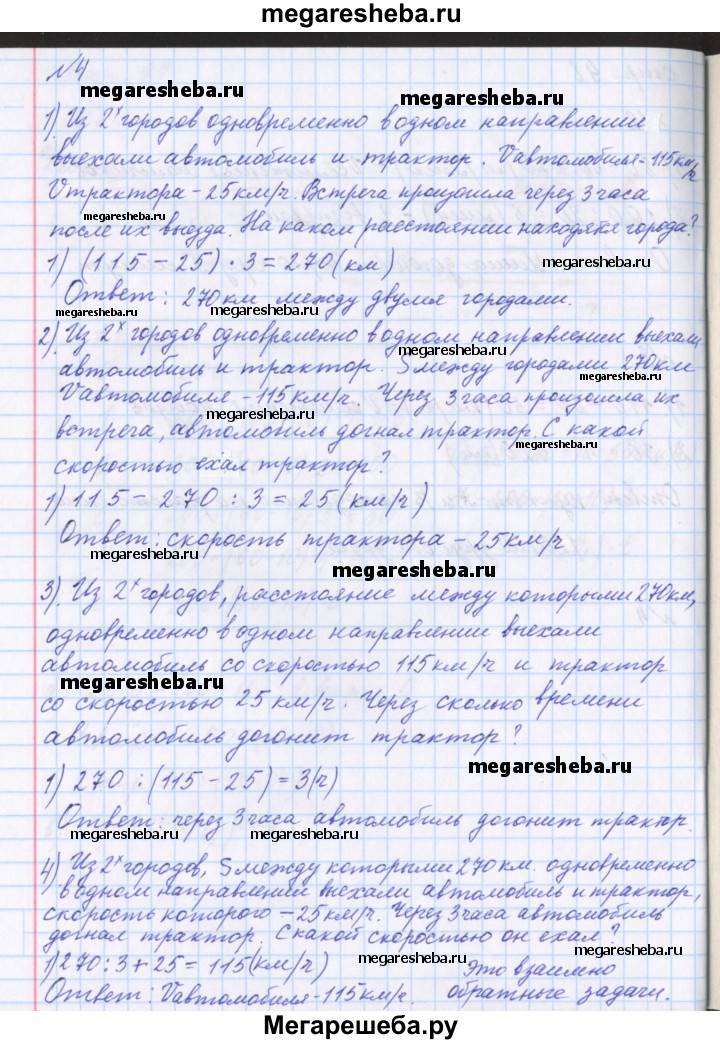 megaresheba.ru
№4
megaresheba.ru
megaresheba.ru
1) Из 2х городов одновременно в одном направлении
выехали автомобиль и трактор. Vавтомобиля - 115 км/ч
Vтрактора - 25 км/ч. Встреча произошла через 3 часа
megaresheba.ru
после их выезда. На каком расстоянии находятся города?
1) (115 - 25) · 3 = 270 (км)
megaresheba.ru
Ответ: 270 км между двумя городами.
megaresheba.ru
2) Из 2х городов одновременно в одном направлении выехали
megaresheba.ru
автомобиль и трактор. S между городами 270 км
megaresheba.ru
Vавтомобиля - 115 км/ч. Через 3 часа произошла их
megaresheba.ru
встреча, автомобиль догнал трактор. С какой
megaresheba.ru
скоростью ехал трактор?
1) 115 - 270 : 3 = 25 (км/ч)
Ответ: скорость трактора - 25 км/ч
megaresheba.ru
megaresheba.ru
3) Из 2х городов, расстояние между которыми 270 км,
одновременно в одном направлении выехали
автомобиль со скоростью 115 км/ч и трактор
megaresheba.ru
со скоростью 25 км/ч. Через сколько времени
автомобиль догонит трактор?
megaresheba.ru
1) 270 : (115 - 25) = 3 (ч)
Ответ: через 3 часа автомобиль догонит трактор.
megaresheba.ru
megaresheba.ru
4) Из 2х городов, S между которыми 270 км. одновременно
в одном направлении выехали автомобиль и трактор,
скорость которого - 25 км/ч. Через 3 часа автомобиль
догнал трактор. С какой скоростью он ехал?
megaresheba.ru
megaresheba.ru
1) 270 : 3 + 25 = 115 (км/ч)
Это взаимно
Ответ: Vавтомобиля - 115 км/ч.
обратные задачи.
Мегарешеба.ру